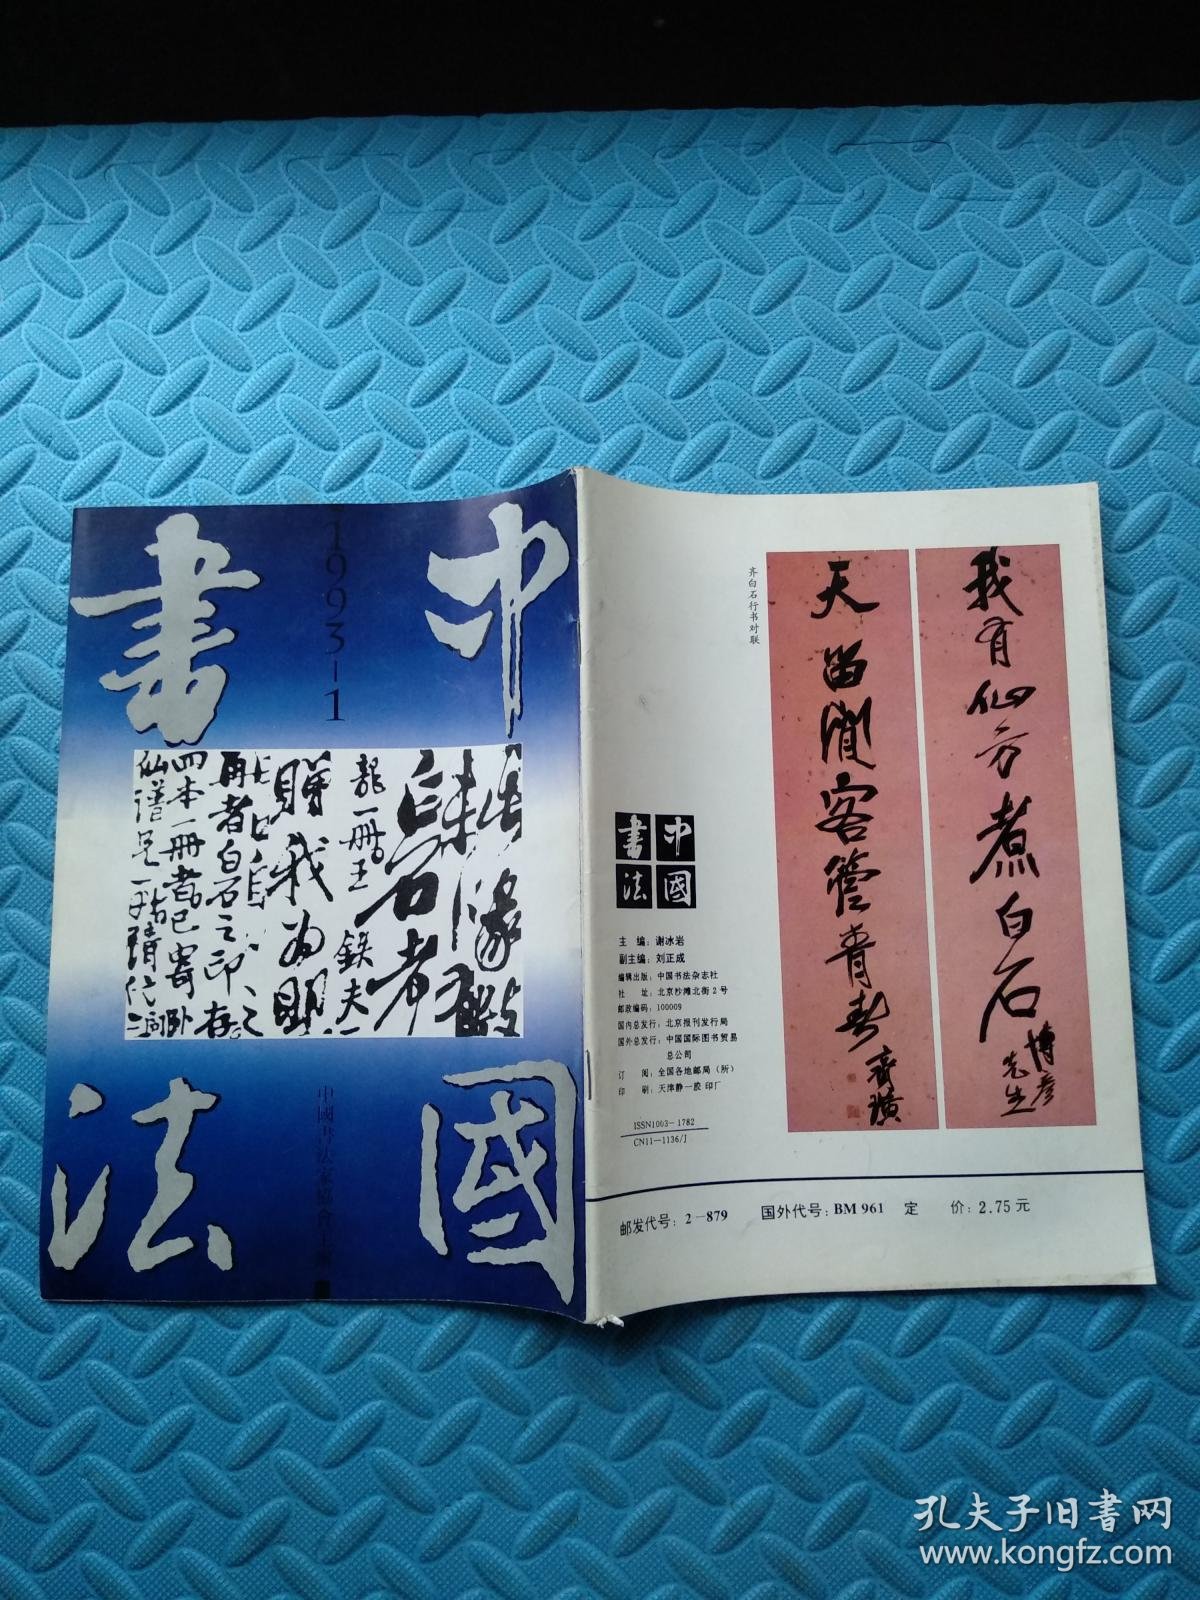 中國
書法
1993-1
龍一冊王鉄夫
贈我為
再者白石之印存
四本一冊者已寄
中國書法家協會主編
齐白石行书对联
我有仙方煮白石
博彦先生
天留閒客管青春
齐璜
中國
書法
主 编：谢冰岩
副主编：刘正成
编辑出版：中国书法杂志社
社 址：北京沙滩北街2号
邮政编码：100009
国内总发行：北京报刊发行局
国外总发行：中国国际图书贸易
总公司
订 阅：全国各地邮局（所）
印 刷：天津静一胶印厂
ISSN1003-1782
CN11-1136/J
邮发代号：2-879 国外代号：BM 961 定 价：2.75元
孔夫子旧书网
www.kongfz.com